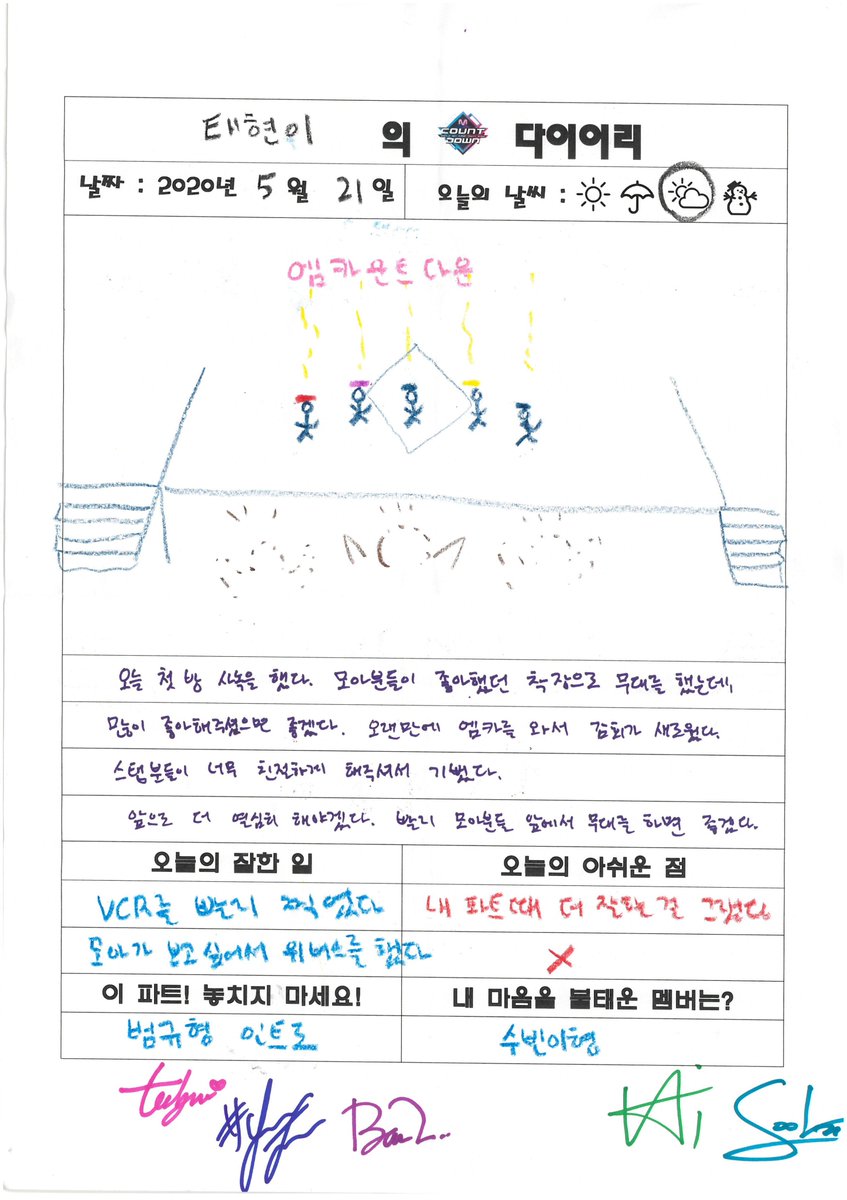 태현이 의 M COUNT DOWN 다이어리
날짜 : 2020년 5월 21일 오늘의 날씨 :
엠카운트다운
오늘 첫 방 사녹을 했다. 모아분들이 좋아했던 착장으로 무대를 했는데,
많이 좋아해주셨으면 좋겠다. 오랜만에 엠카를 와서 감회가 새로웠다.
스탭분들이 너무 친절하게 해주셔서 기뻤다.
앞으로 더 열심히 해야겠다. 빨리 모아분들 앞에서 무대를 하면 좋겠다.
오늘의 잘한 일 오늘의 아쉬운 점
VCR을 빨리 찍었다 내 파트때 더 잘하는걸 그랬다
모아가 보고싶어서 위버스를 했다 X
이 파트! 놓치지 마세요! 내 마음을 불태운 멤버는?
범규형 인트로 수빈이형